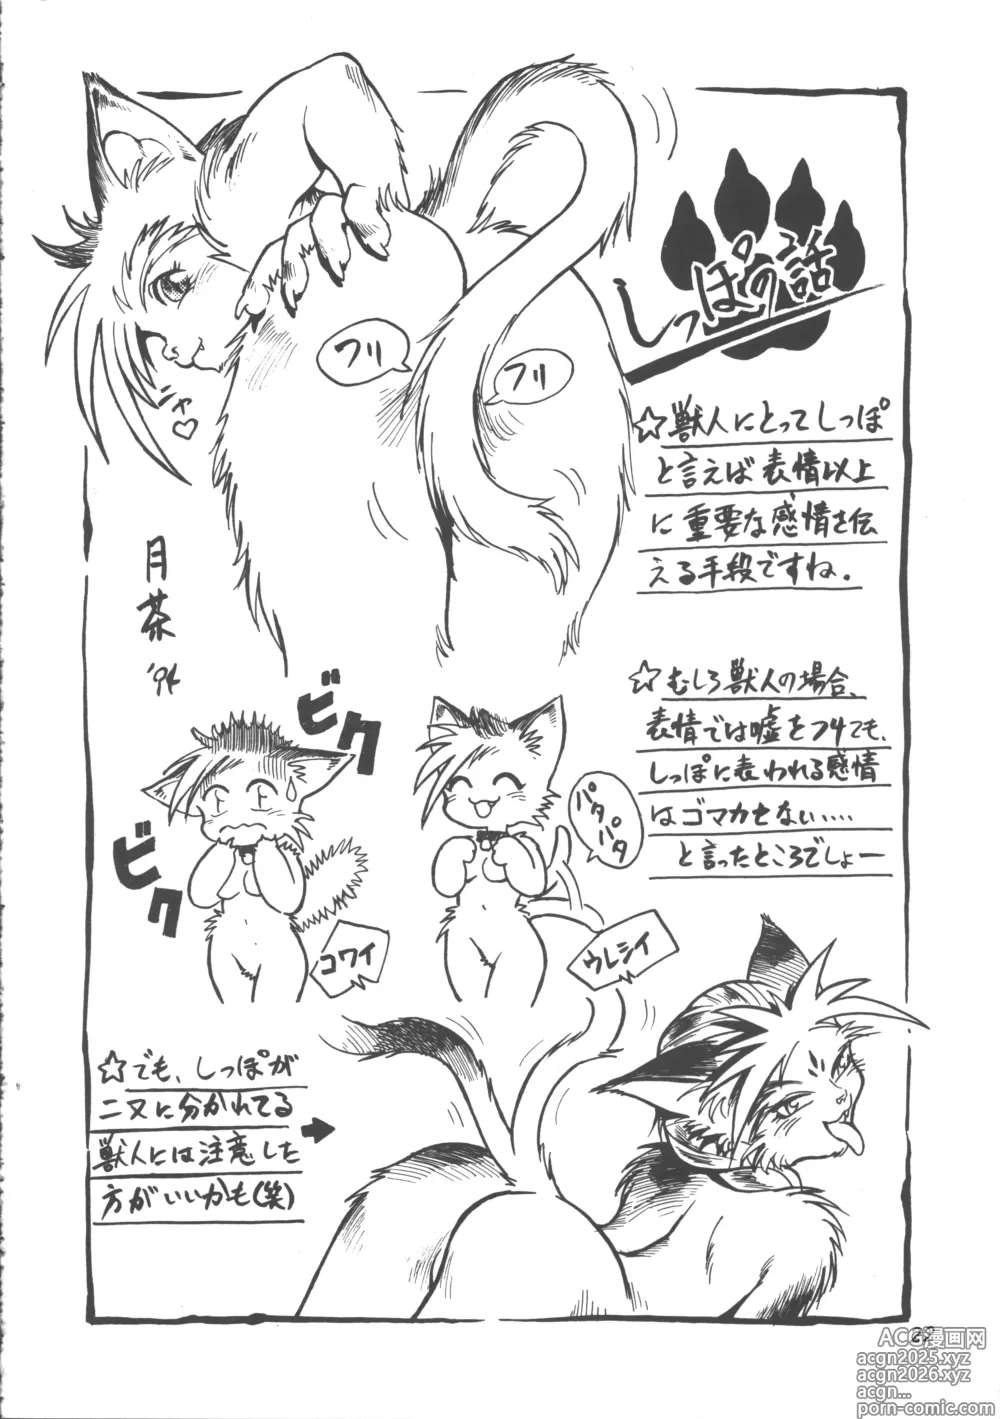 しっぽの話
フリ
フリ
ニャ♡
☆獣人にとってしっぽ
と言えば表情以上
に重要な感情を伝
える手段ですね。
月茶
'94
☆むしろ獣人の場合、
表情では嘘をつけても、
しっぽに表われる感情
はゴマカせない‥‥
と言ったところでしょー
ビク
ビク
コワイ
パタパタ
ウレシイ
☆でも、しっぽが
二又に分かれてる
獣人には注意した
方がいいかも(笑)
29
ACG漫画网
acgn2025.xyz
acgn2026.xyz
acgn...
porn-comic.com